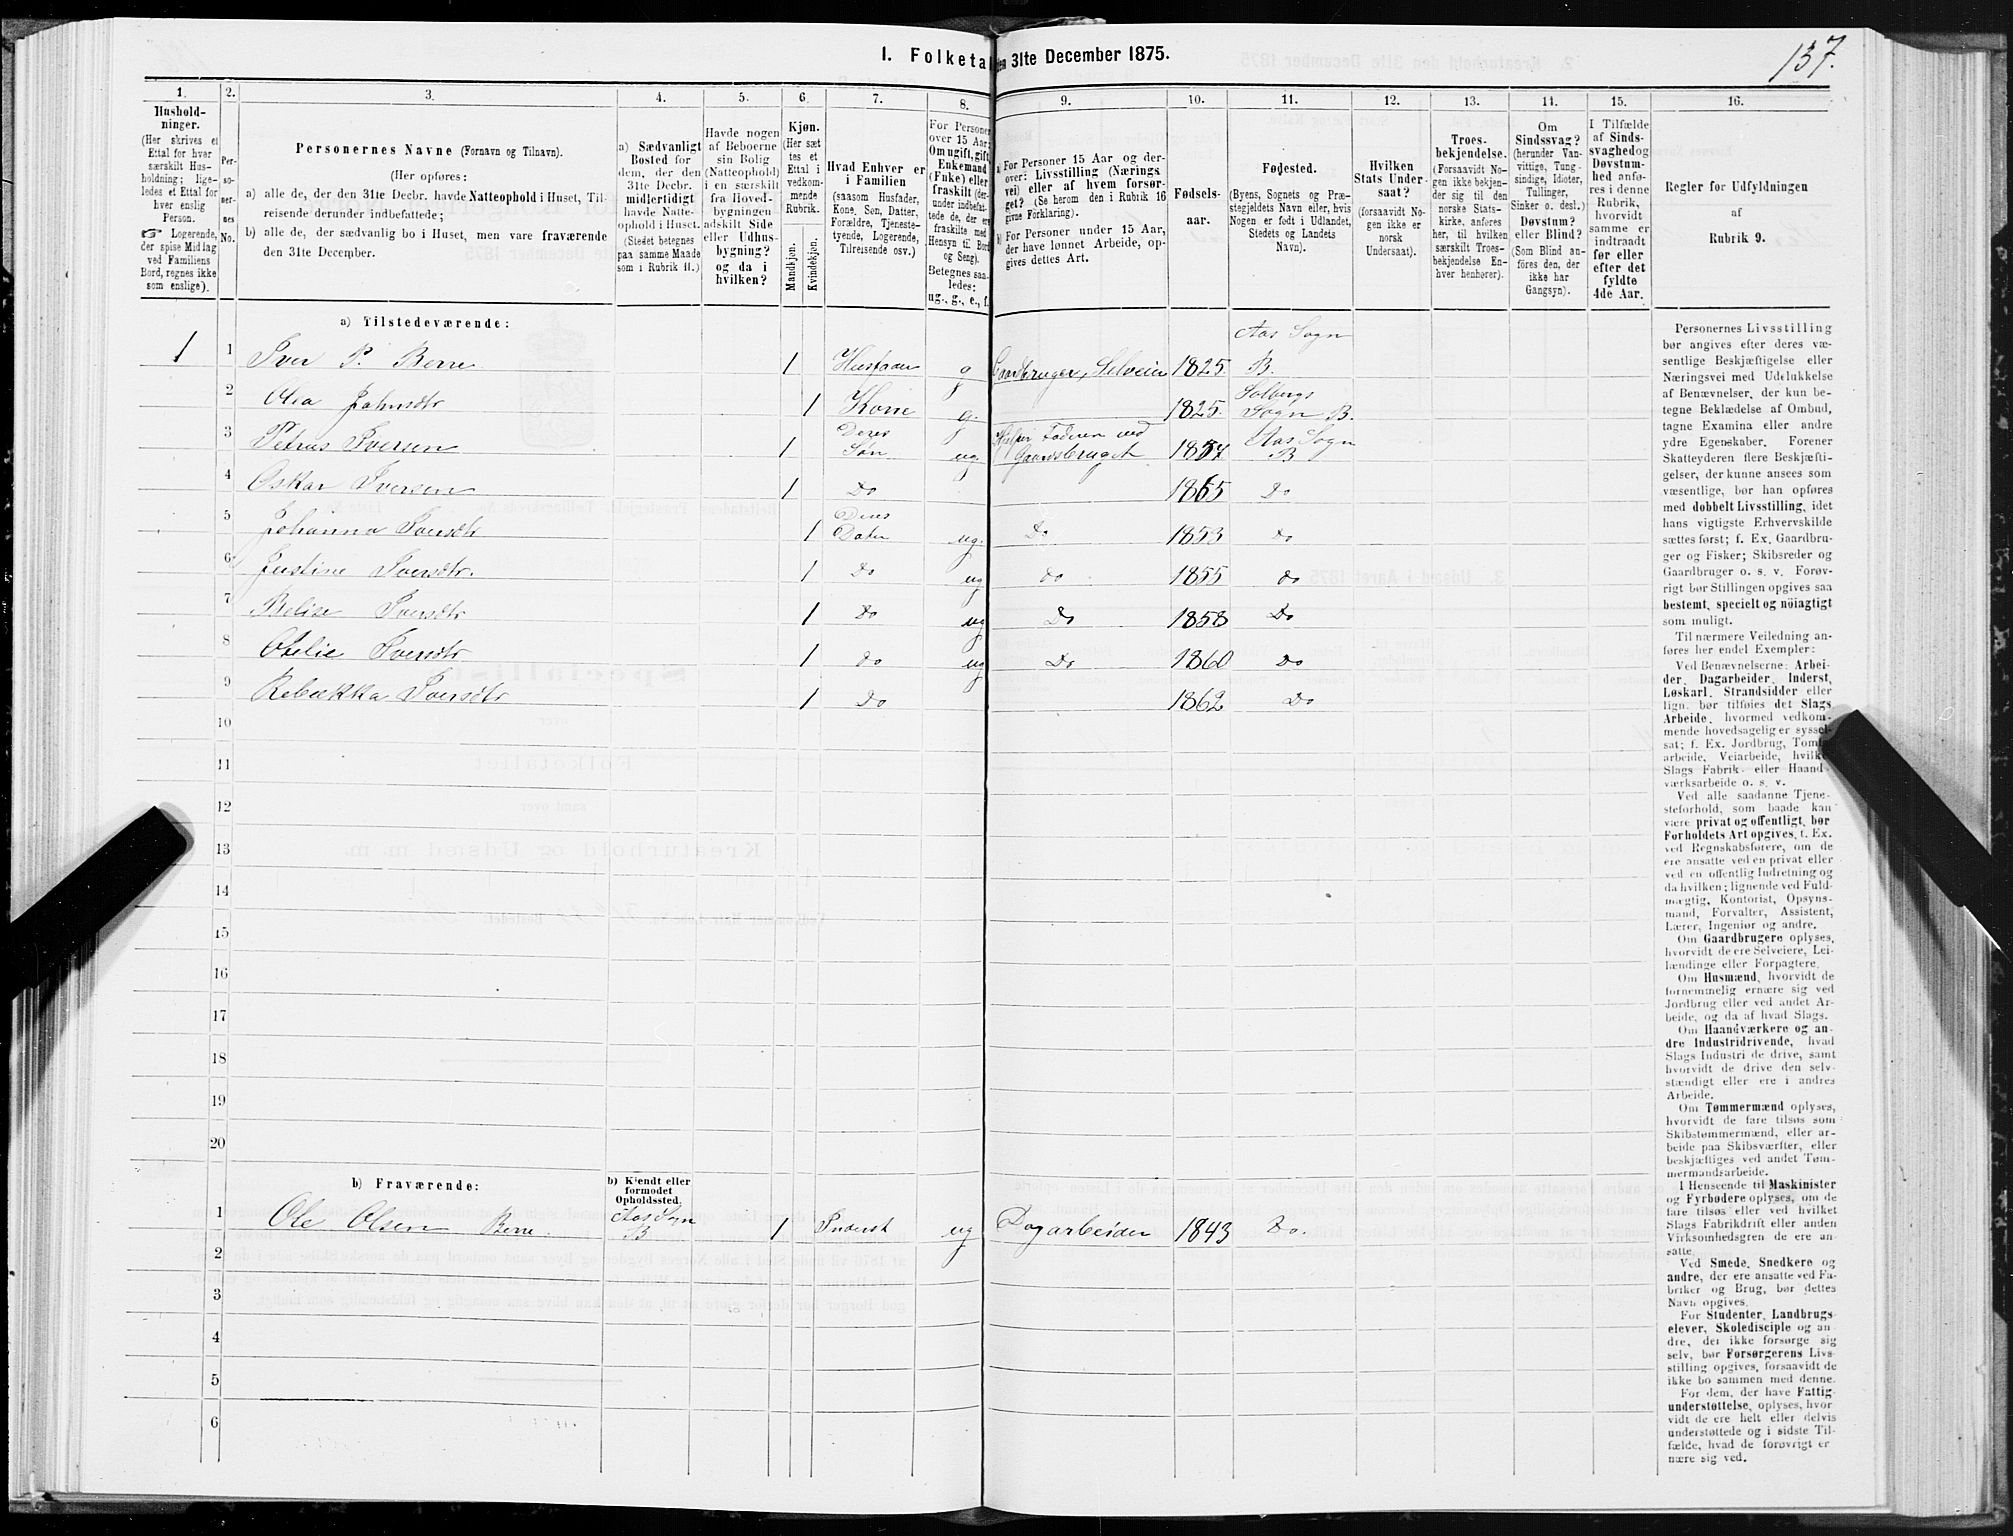 137.
I. Folketa
en 31te December 1875.
1. 2. 3. 4. 5. 6. 7. 8. 9. 10. 11. 12. 13. 14. 15. 16.
Hushold-
ninger.
(Her skrives et
Ettal for hver
særskilt Hus-
holdning; lige-
ledes et Ettal for
hver enslig
Person.
☞ Logerende,
der spise Midlag
ved Familiens
Bord, regnes ikke
som enslige).
Per-
so-
ner-
nes
No.
Personernes Navne (Fornavn og Tilnavn).
(Her opføres:
a) alle de, der den 31te Decbr. havde Natteophold i Huset, Til-
reisende derunder indbefattede;
b) alle de, der sædvanlig bo i Huset, men vare fraværende
den 31te December.
a) Sædvanligt
Bosted for
dem, der den
31te Decbr.
midlertidigt
havde Natte-
ophold i Huset.
(Stedet betegnes
paa samme Maade
som i Rubrik 11.)
Havde nogen
af Beboerne
sin Bolig
(Natteophold)
i en særskilt
fra Hoved-
bygningen
adskilt Side
eller Udhus-
bygning?
og da i
hvilken?
Kjøn.
(Her sæt
tes et
Ettal i
vedkom-
mende
Rubrik.
Mandkjøn.
Kvindekjøn.
Hvad Enhver er
i Familien
(saasom Husfader,
Kone, Søn, Datter,
Forældre, Tjeneste-
tyende, Logerende,
Tilreisende osv.)
For Personer
over 15 Aar:
Om ugift, gift,
Enkemand
(Enke) eller
fraskilt (der-
under indbefat-
tede de, der ere
fraskilte med
Hensyn til Bord
og Seng).
Betegnes saa-
ledes:
ug., g., e., f.
a) For Personer 15 Aar og der-
over: Livsstilling (Nærings
vei) eller af hvem forsør-
get? (Se herom den i Rubrik 16
givne Forklaring).
b) For Personer under 15 Aar,
der have lønnet Arbeide, op-
gives dettes Art.
Fødsels-
aar.
Fødested.
(Byens, Sognets og Præ-
stegjeldets Navn eller, hvis
Nogen er født i Udlandet,
Stedets og Landets
Navn).
Hvilken
Stats Under-
saat?
(forsaavidt No-
gen ikke er
norsk
Undersaat).
Troes-
bekjendelse.
(Forsaavidt No-
gen ikke bekjen-
der sig til den
norske Stats-
kirke, anføres
her, til hvilken
særskilt Troes-
bekjendelse En-
hver henhører).
Om
Sindssvag?
(herunder Van-
vittige, Tung-
sindige, Idioter,
Tullinger,
Sinker o. desl.)
Døvstum?
eller Blind?
(Som Blind an-
føres den, der
ikke har
Gangsyn).
I Tilfælde
af Sinds-
svaghed og
Døvstum-
hed anfø-
res i denne
Rubrik,
hvorvidt
samme er
indtraadt
før eller
efter det
fyldte
4de Aar.
Regler for Udfyldningen
af
Rubrik 9.
a) Tilstedeværende:
1 1 Iver P. Berre 1 Husfader g Gaardbruger, Selveier 1825. Aas Sogn B.
2 Olia Johnsdtr 1 Kone g. 1825. Solbergs Sogn B.
3 Petrus Iversen 1 Deres Søn ug. Hjelper Faderen ved Gaardsbruget 1857 Aas Sogn B
4 Oskar Iversen 1 Do 1865 Do
5 Johanna Iversdtr 1 Deres Dater ug. Do 1853 Do
6 Justine Iversdtr. 1 Do ug do 1855 do
7 Belise Iversdtr 1 Do ug Do 1858 Do
8 Otelie Iversdtr 1 do ug Do 1860 Do
9 Rebekka Iversdtr 1 Do 1862 Do
10
11
12
13
14
15
16
17
18
19
20
b) Fraværende:
b) Kjendt eller
formodet
Opholdssted.
1 Ole Olsen Berre. Aas Sogn B 1 Inderst ug Dagarbeider 1843 Do.
2
3
4
5
6
Personernes Livsstilling
bør angives efter deres væ-
sentlige Beskjæftigelse eller
Næringsvei med Udelukkelse
af Benævnelser, der kun be-
tegne Beklædelse af Ombud,
tagne Examina eller andre
ydre Egenskaber. Forener
Skatteyderen flere Beskjæfti-
gelser, der kunne ansees som
væsentlige, bør han opføres
med dobbelt Livsstilling, idet
hans vigtigste Erhvervskilde
sættes først; f. Ex. Gaardbru-
ger og Fisker; Skibsreder og
Gaardbruger o. s. v. Forøv-
rigt bør Stillingen opgives saa
bestemt, specielt og nøiagtigt
som muligt.
Til nærmere Veiledning an-
føres her endel Exempler:
Ved Benævnelserne: Arbei-
der, Dagarbeider, Inderst,
Løskarl, Strandsidder eller
lign. bør tilføies det Slags
Arbeide, hvormed vedkom-
mende hovedsagelig er syssel-
sat; f. Ex. Jordbrug, Tomt-
arbeide, Veiarbeide, hvilke
Slags Fabrik- eller Haand-
værksarbeide o. s. v.
Ved alle saadanne Tjene-
steforhold, som baade kan
være privat og offentligt, bør
Forholdets Art opgives, t. Ex.
ved Regnskabsførere, om de
ere ansatte ved en privat eller
ved en offentlig Indretning og
da hvilken; lignende ved Fuld-
mægtig, Kontorist, Opsyns-
mand, Forvalter, Assistent,
Lærer, Ingeniør og andre.
Om Gaardbrugere oplyses,
hvorvidt de ere Selveiere, Lei-
lændinge eller Forpagtere.
Om Husmænd, hvorvidt de
fornemmelig ernære sig ved
Jordbrug eller ved andet Ar-
beide, og da af hvad Slags.
Om Haandværkere og an-
dre Industridrivende, hvad
Slags Industri de drive, samt
hvorvidt de drive den selv-
stændigt eller ere i andres
Arbeide.
Om Tømmermænd oplyses,
hvorvidt de fare tilsøs som
Skibstømmermænd, eller ar-
beide paa Skibsværfter, eller
beskjæftiges ved andet Tøm-
mermandsarbeide.
I Henseende til Maskinister
og Fyrbødere oplyses, om de
fare tilsøs eller ved hvilket
Slags Fabrikdrift eller anden
Virksomhedsgren de ere an-
satte.
Ved Smede, Snedkere og
andre, der ere ansatte ved Fa-
briker og Brug, bør dettes
Navn opgives.
For Studenter, Landbrugs-
elever, Skoledisciple og an-
dre, der ikke forsørge sig
selv, bør Forsørgerens Livs-
stilling opgives, forsaavidt de
ikke bo sammen med denne.
For dem, der have Fattig-
understøttelse, oplyses, hvor-
vidt de ere helt eller delvis
understøttede og i sidste Til-
fælde, hvad de forøvrigt er
nære sig ved.